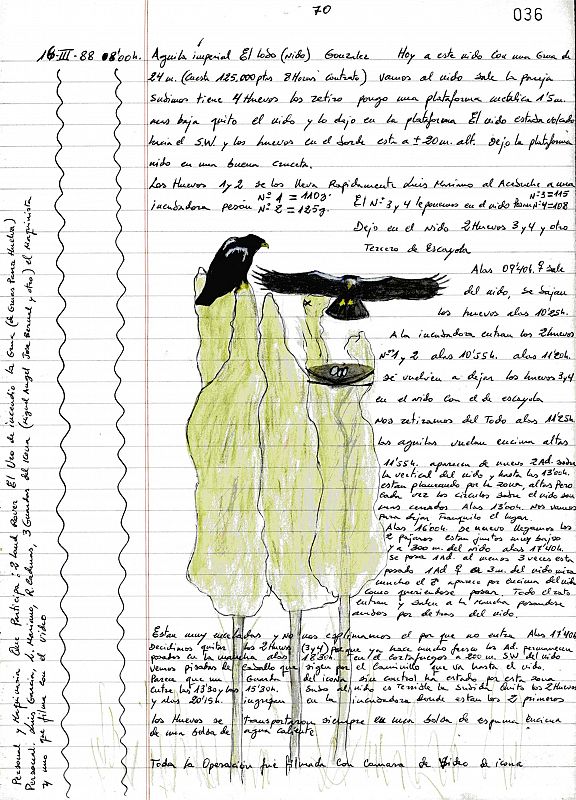 70
036
16-III-88 08'00h. Aguila imperial El Lobo (Nido) Gonzalez Hoy a este nido con una Grua de
24 m. (Cuesta 125.000 pts 8 Horas contrato) vamos al nido sale la pareja
Subimos tiene 4 Huevos los retiro pongo una plataforma metalica 1'5 m.
mas baja quito el nido y lo dejo en la plataforma El nido estaba volcado
hacia el SW y los huevos en el borde esta a ± 20 m. alt. Dejo la plataforma
nido en una buena cruceta.
Los Huevos 1 y 2 se los lleva Rapidamente Luis Mariano al Acebuche a una
incubadora pesan Nº 1 = 110g. Nº 2 = 125g. El Nº 3 y 4 le ponemos en el nido Nº 3 = 115 Nº 4 = 108
Dejo en el Nido 2 Huevos 3 y 4 y otro
Tercero de Escayola
A las 09'40h. ♀ sale
del nido, se bajan
los huevos a las 10'25h.
A la incubadora entran los 2 huevos
Nº 1 y 2 a las 10'55h. a las 11'20h.
se vuelven a dejar los huevos 3 y 4
en el nido con el de escayola
Nos retiramos del Todo a las 11'25h
las aguilas vuelan encima altas
11'55h. aparecen de nuevo 2 Ad. sobre
la vertical del nido y hasta las 13'00h.
estan planeando por la zona, altas pero
cada vez los circulos sobre el nido son
mas cerrados A las 13'00h. Nos vamos
para dejar Tranquilo el lugar.
A las 16'00h. de nuevo llegamos los
2 pajaros estan juntos muy bajos
y a 300 m. del nido a las 17'40h.
se posa 1 Ad al menos 3 veces esta
posado 1 Ad ♀ a 3 m. del nido mira
mucho el ♂ aparece por encima del nido
como queriendose posar. Todo el rato
entran y salen a la mancha posandose
ambos por detras del nido.
Estan muy y no nos explicamos el por que no entra A las 17'40h
decidimos quitar los 2 Huevos (3 y 4) porque ya hace mucho fresco los Ad. permanecen
posados en la mancha a las 18'30h. en el cortafuegos a 200 m. SW del nido
vemos pisadas de Caballo que siguen por el Caminillo que va hasta el nido.
Parece que un Guarda del icona sin control ha estado por esta zona
entre las 13'30 y las 15'30h. Subo al nido es Terrible la subida Quito los 2 Huevos
y a las 20'15h. ingresan en la incubadora donde estan los 2 primeros
los Huevos se Transportaron siempre en una bolsa de espuma encima
de una bolsa de agua caliente.
Toda la Operacion fue filmada con Camara de Video de icona
Personal y Maquinaria Que Participa: 2 Land Rover El Uro de incendio la Grua (de Gruas Perez Huelva)
Personal: Luis Garcia, L. Mariano, R. Cadenas, 3 Guardas del Icona (Miguel Angel Jose Bernal y otro) el Maquinista
y uno que filma con el Video